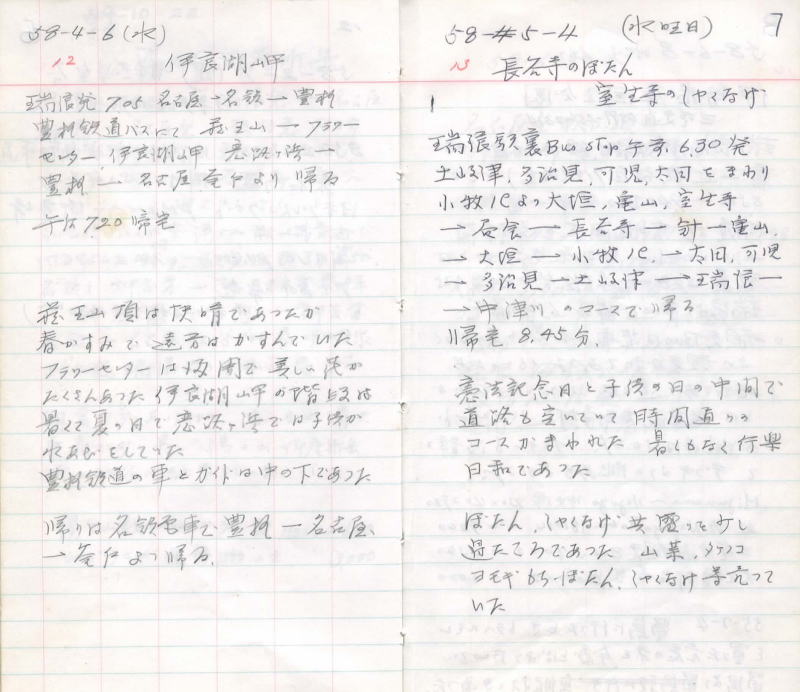 58-4-6(水)
12
伊良湖岬
瑞浪発 705 名古屋→名鉄→豊橋
豊橋鉄道バスにて 蔵王山→フラワー
センター 伊良湖岬 恋路ヶ浜→
豊橋→名古屋 より帰る
午后7.20帰宅
蔵王山頂は快晴であったが
春かすみで遠方はかすんでいた
フラワーセンターは で美しい花が
たくさんあった 伊良湖岬の階段は
暑くて夏の日で恋路ヶ浜では子供が
水あびをしていた
豊橋鉄道の車とガイドは中の下であった
帰りは名鉄電車で豊橋―名古屋、
→ より帰る。
7
58-5-4 (水旺日)
13
長谷寺のぼたん
室生寺のしゃくなげ
瑞浪駅裏Bus Stop午前6.30発
土岐津、多治見、可児、太田をまわり
小牧ICより大垣、亀山、室生寺
→ →長谷寺→針→亀山
→大垣→小牧IC→太田、可児
→多治見→土岐津→瑞浪―
→中津川のコースで帰る
帰宅8.45分.
憲法記念日と子供の日の中間で
道路も空いていて時間通りの
コースがまわれた 暑くもなく行楽
日和であった
ぼたん、しゃくなげ共 って少し
たころであった 山菜、タケノコ
ヨモギもち、ぼたん、しゃくなげ等売って
いた